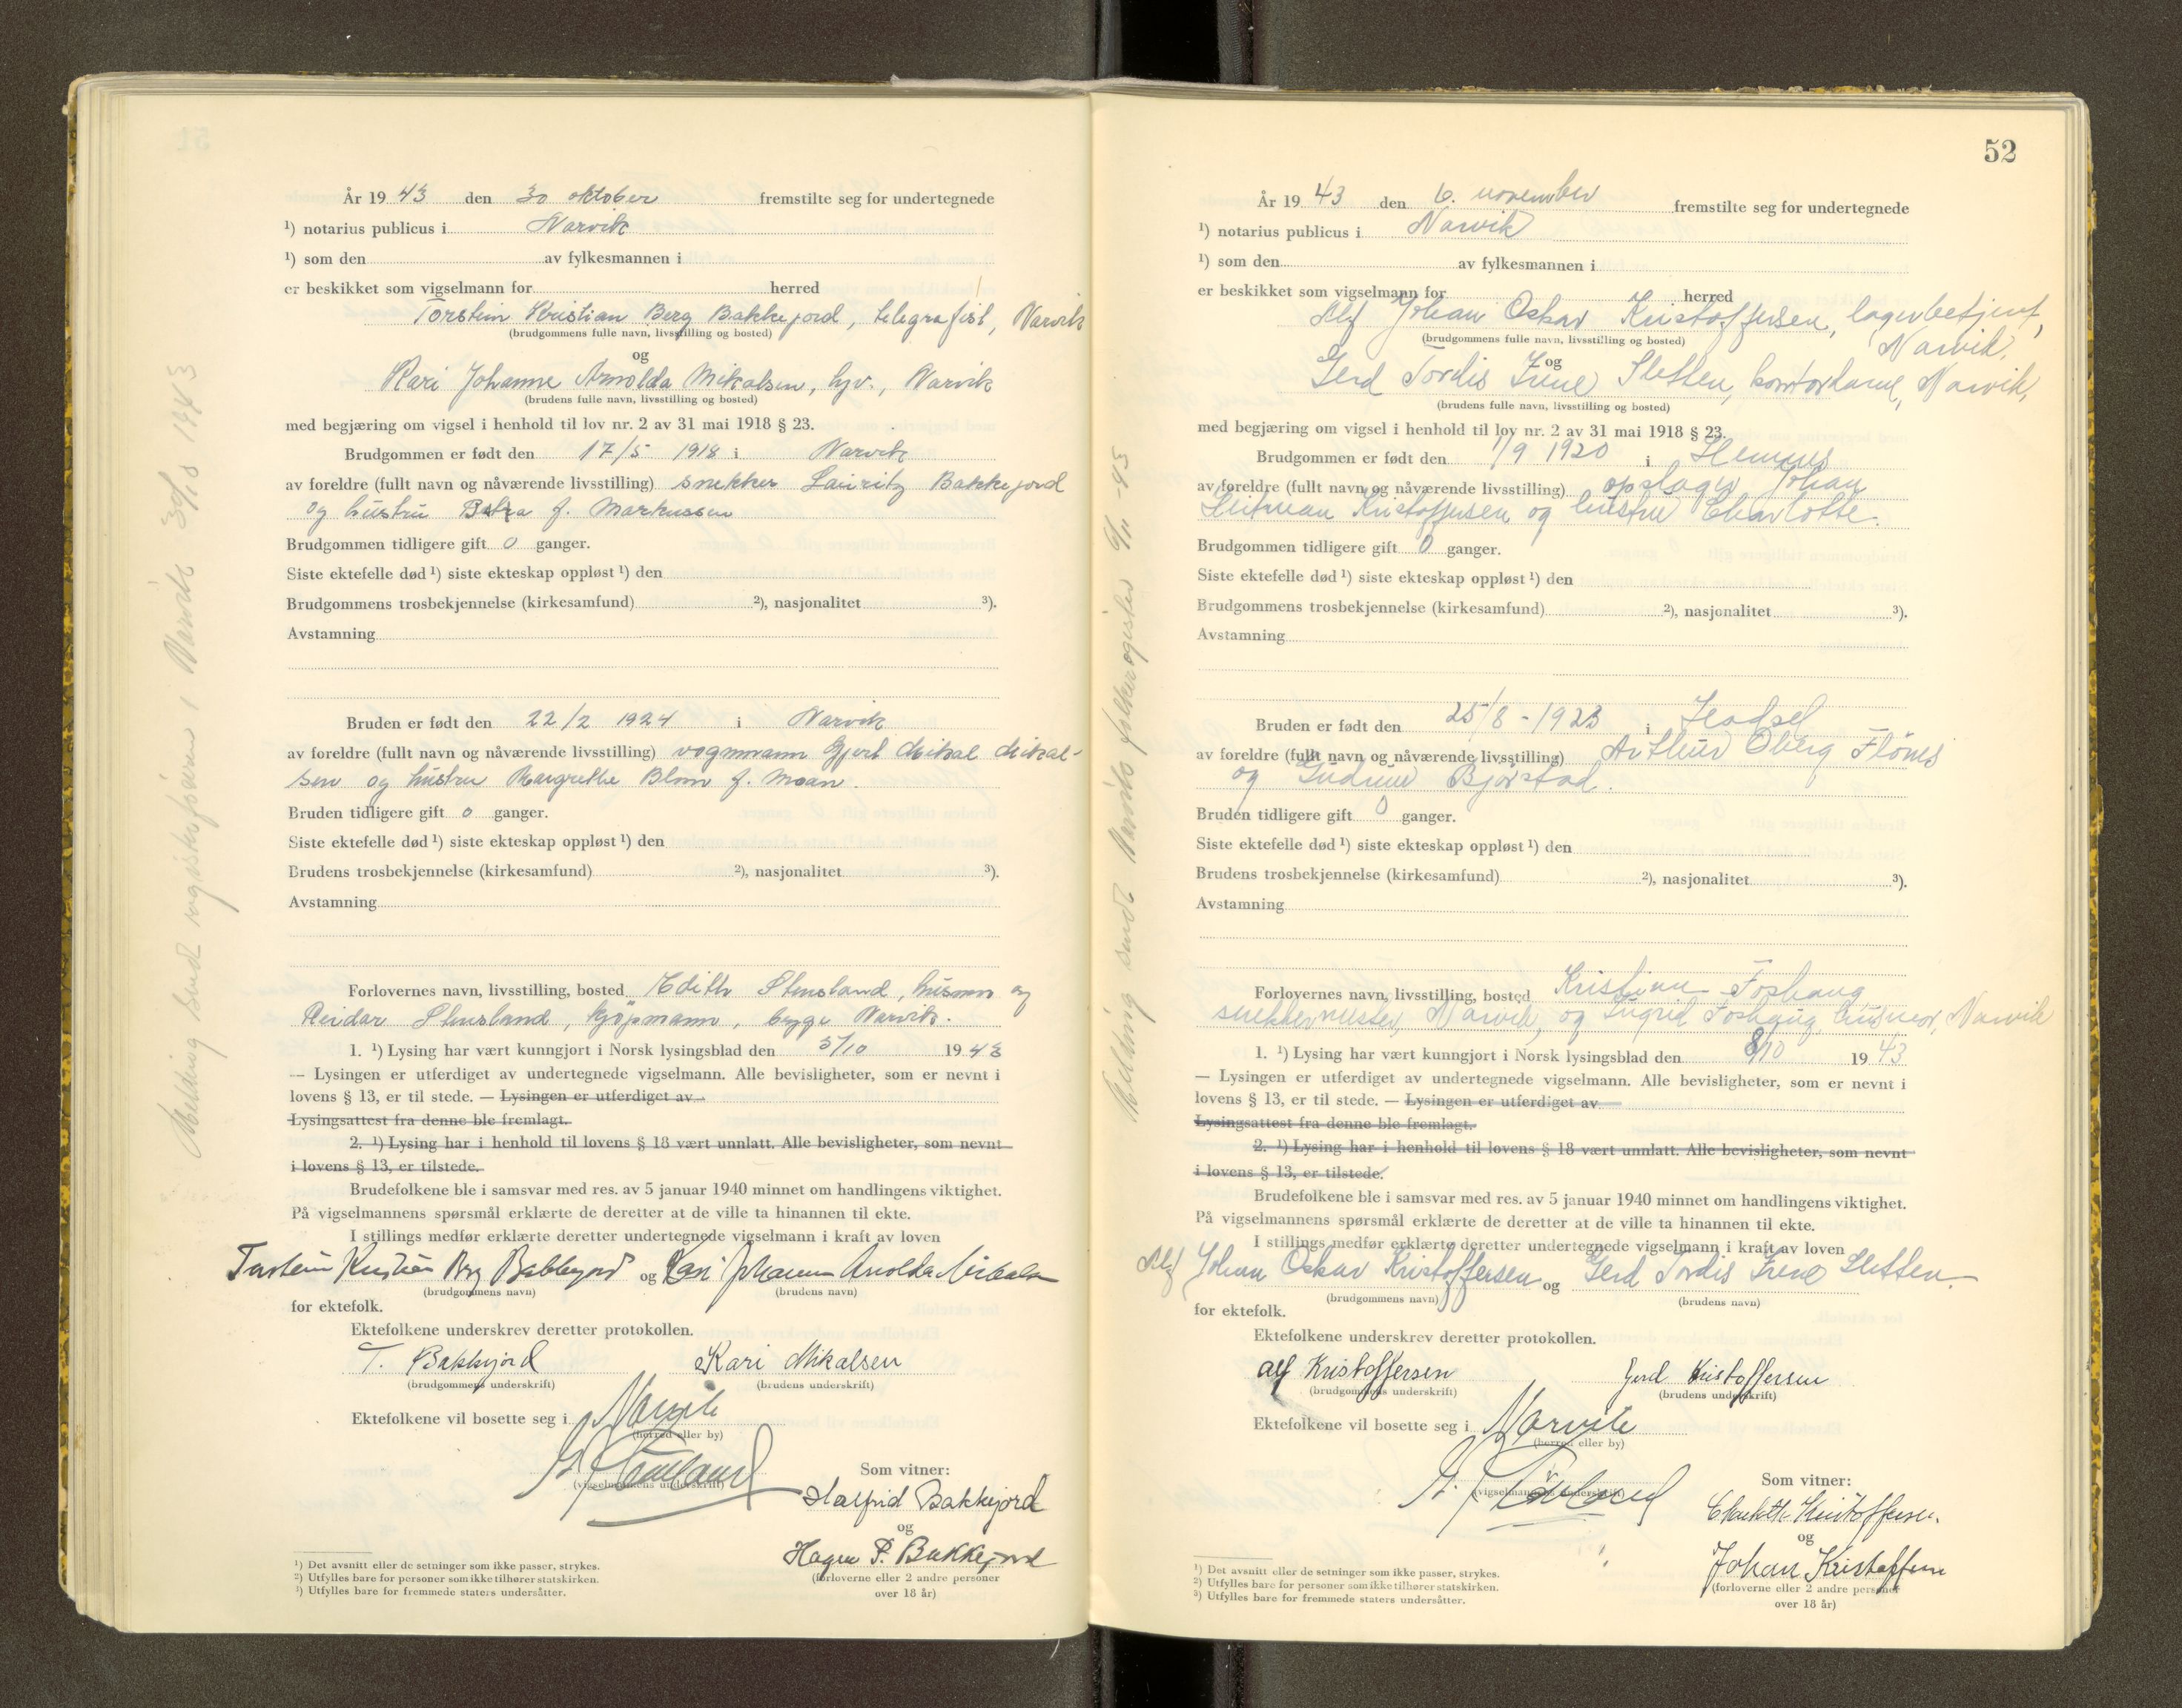 År 19 43 den 30 oktober fremstilte seg for undertegnede
¹) notarius publicus i Narvik
¹) som den av fylkesmannen i
er beskikket som vigselmann for herred
Torstein Kristian Berg Bakkejord, telegrafist, Narvik
(brudgommens fulle navn, livsstilling og bosted)
og
Kari Johanne Arnolda Mikalsen, hjv., Narvik
(brudens fulle navn, livsstilling og bosted)
med begjæring om vigsel i henhold til lov nr. 2 av 31 mai 1918 § 23.
Brudgommen er født den 17/5 1918 i Narvik
av foreldre (fullt navn og nåværende livsstilling) snekker Lauritz Bakkejord
og hustru Petra f. Markussen
Brudgommen tidligere gift 0 ganger.
Siste ektefelle død ¹) siste ekteskap oppløst ¹) den
Brudgommens trosbekjennelse (kirkesamfund) ²), nasjonalitet ³).
Avstamning
Bruden er født den 22/2 1924 i Narvik
av foreldre (fullt navn og nåværende livsstilling) vognmann Gjert Mikal Mikal-
sen og hustru Margrethe Blom f. Moan.
Bruden tidligere gift 0 ganger.
Siste ektefelle død ¹) siste ekteskap oppløst ¹) den
Brudens trosbekjennelse (kirkesamfund) ²), nasjonalitet ³).
Avstamning
Forlovernes navn, livsstilling, bosted Edith Stensland, husmor og
Reidar Stensland, kjøpmann, begge Narvik.
1. ¹) Lysing har vært kunngjort i Norsk lysingsblad den 5/10 19 43
— Lysingen er utferdiget av undertegnede vigselmann. Alle bevisligheter, som er nevnt i
lovens § 13, er til stede. — Lysingen er utferdiget av
Lysingsattest fra denne ble fremlagt.
2. ¹) Lysing har i henhold til lovens § 18 vært unnlatt. Alle bevisligheter, som nevnt
i lovens § 13, er tilstede.
Brudefolkene ble i samsvar med res. av 5 januar 1940 minnet om handlingens viktighet.
På vigselmannens spørsmål erklærte de deretter at de ville ta hinannen til ekte.
I stillings medfør erklærte deretter undertegnede vigselmann i kraft av loven
Torstein Kristian Berg Bakkejord og Kari Johanne Arnolda Mikalsen
(brudgommens navn) (brudens navn)
for ektefolk.
Ektefolkene underskrev deretter protokollen.
T. Bakkejord Kari Mikalsen
(brudgommens underskrift) (brudens underskrift)
Ektefolkene vil bosette seg i Narvik
(herred eller by)
(vigselmannens underskrift)
Som vitner:
Halfrid Bakkejord
og
Hagen P. Bakkejord
(forloverne eller 2 andre personer
over 18 år)
¹) Det avsnitt eller de setninger som ikke passer, strykes.
²) Utfylles bare for personer som ikke tilhører statskirken.
³) Utfylles bare for fremmede staters undersåtter.
Melding sendt registerføreren i Narvik 30/10 1943
52
År 19 43 den 6. november fremstilte seg for undertegnede
¹) notarius publicus i Narvik
¹) som den av fylkesmannen i
er beskikket som vigselmann for herred
Alf Johan Oskar Kristoffersen, lagerbetjent,
(brudgommens fulle navn, livsstilling og bosted)
Narvik,
og
Gerd Tordis Irene Sletten, kontordame, Narvik,
(brudens fulle navn, livsstilling og bosted)
med begjæring om vigsel i henhold til lov nr. 2 av 31 mai 1918 § 23.
Brudgommen er født den 1/9 1920 i Hemnes
av foreldre (fullt navn og nåværende livsstilling) opslager Johan
Heitman Kristoffersen og hustru Charlotte.
Brudgommen tidligere gift 0 ganger.
Siste ektefelle død ¹) siste ekteskap oppløst ¹) den
Brudgommens trosbekjennelse (kirkesamfund) ²), nasjonalitet ³).
Avstamning
Bruden er født den 25/8 - 1923 i Hadsel
av foreldre (fullt navn og nåværende livsstilling) Arthur Oberg Flönes
og Gudrun Bjørstad.
Bruden tidligere gift 0 ganger.
Siste ektefelle død ¹) siste ekteskap oppløst ¹) den
Brudens trosbekjennelse (kirkesamfund) ²), nasjonalitet ³).
Avstamning
Forlovernes navn, livsstilling, bosted Kristian Foshaug
snekkermester, Narvik, og Ingrid Foshaug, husmor, Narvik
1. ¹) Lysing har vært kunngjort i Norsk lysingsblad den 8/10 19 43
— Lysingen er utferdiget av undertegnede vigselmann. Alle bevisligheter, som er nevnt i
lovens § 13, er til stede. — Lysingen er utferdiget av
Lysingsattest fra denne ble fremlagt.
2. ¹) Lysing har i henhold til lovens § 18 vært unnlatt. Alle bevisligheter, som nevnt
i lovens § 13, er tilstede.
Brudefolkene ble i samsvar med res. av 5 januar 1940 minnet om handlingens viktighet.
På vigselmannens spørsmål erklærte de deretter at de ville ta hinannen til ekte.
I stillings medfør erklærte deretter undertegnede vigselmann i kraft av loven
Alf Johan Oskar Kristoffersen og Gerd Tordis Irene Sletten.
(brudgommens navn) (brudens navn)
for ektefolk.
Ektefolkene underskrev deretter protokollen.
Alf Kristoffersen Gerd Kristoffersen
(brudgommens underskrift) (brudens underskrift)
Ektefolkene vil bosette seg i Narvik
(herred eller by)
(vigselmannens underskrift)
Som vitner:
Charlotte Kristoffersen.
og
Johan Kristoffersen
(forloverne eller 2 andre personer
over 18 år)
¹) Det avsnitt eller de setninger som ikke passer, strykes.
²) Utfylles bare for personer som ikke tilhører statskirken.
³) Utfylles bare for fremmede staters undersåtter.
Melding sendt Narvik folkeregister 6/11-43